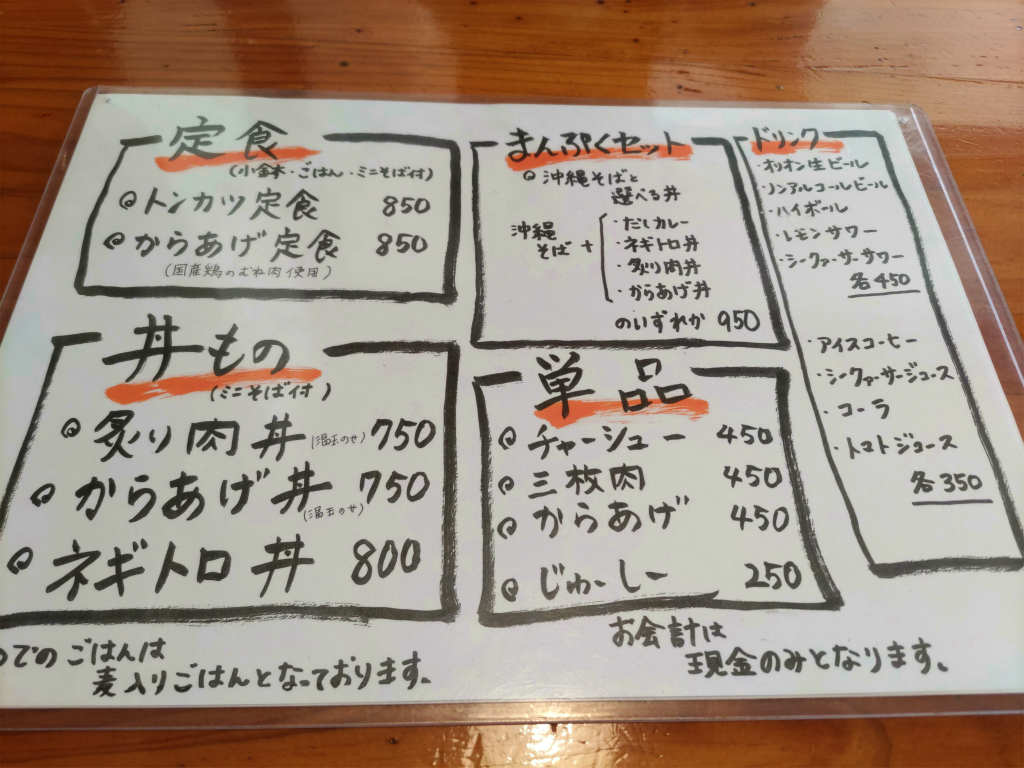 定食
(小鉢・ごはん・ミニそば付)
トンカツ定食 850
からあげ定食 850
(国産鶏のむね肉使用)
丼もの
(ミニそば付)
炙り肉丼 (温玉のせ) 750
からあげ丼 750
(温玉のせ)
ネギトロ丼 800
まんぷくセット
沖縄そばと
選べる丼
沖縄そば +
・だしカレー
・ネギトロ丼
・炙り肉丼
・からあげ丼
のいずれか 950
単品
チャーシュー 450
三枚肉 450
からあげ 450
じゅーしー 250
ドリンク
・オリオン生ビール
・ノンアルコールビール
・ハイボール
・レモンサワー
・シークァーサーサワー
各450
・アイスコーヒー
・シークァーサージュース
・コーラ
・トマトジュース
各350
でのごはんは
麦入りごはんとなっております。
お会計は
現金のみとなります。